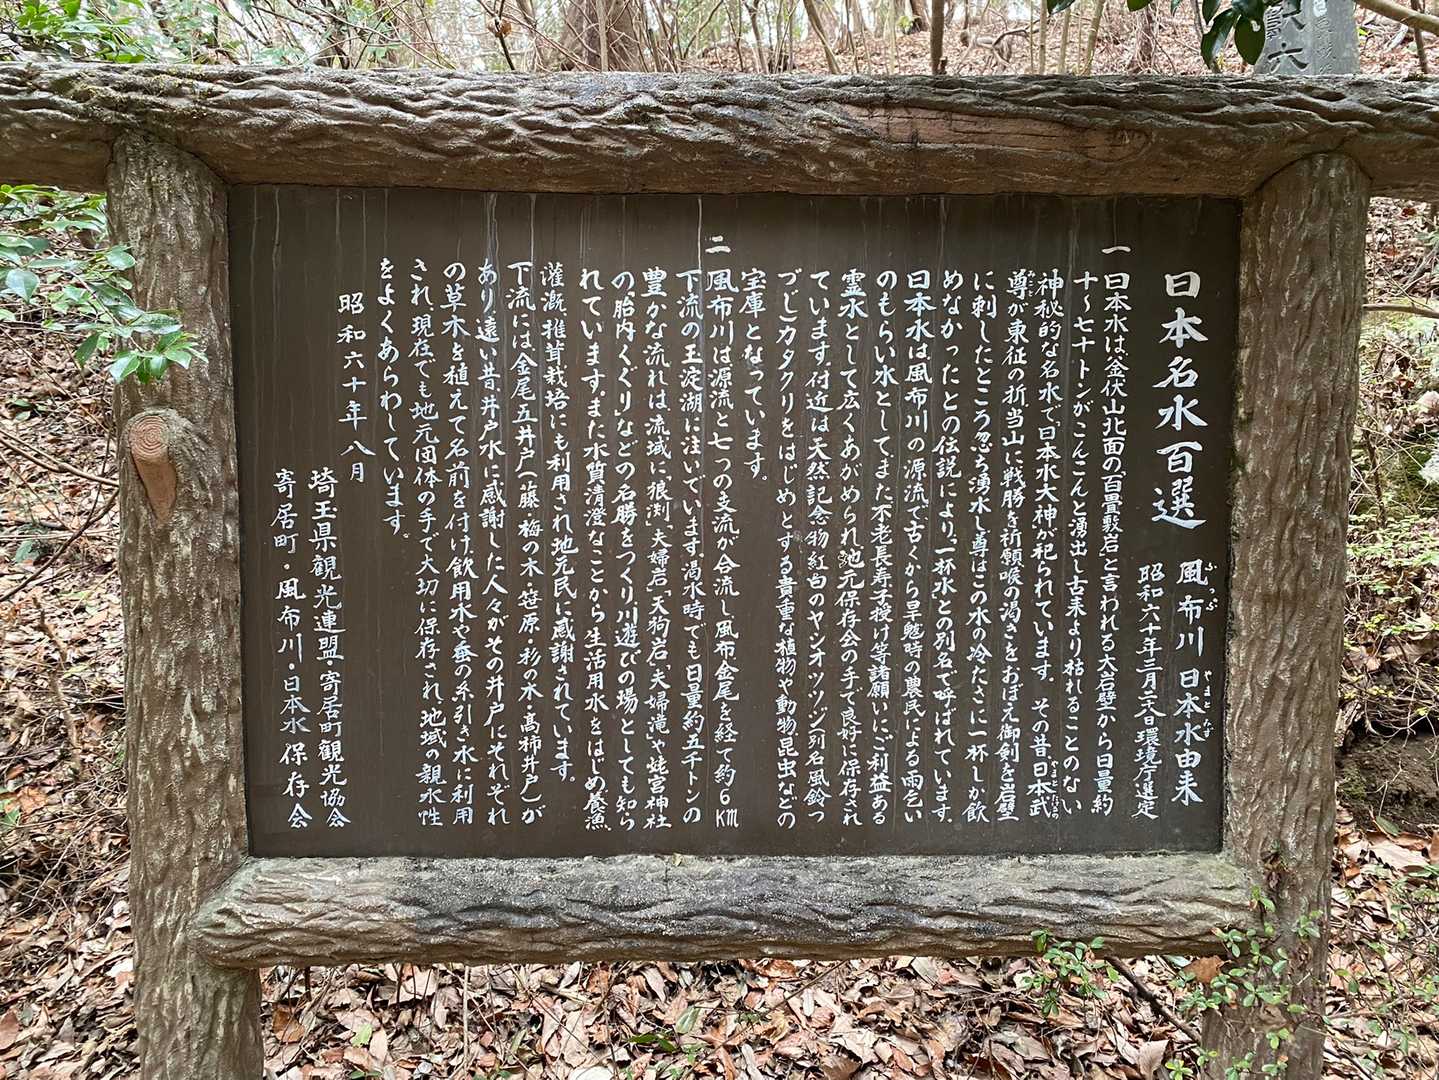 日本名水百選
風布川 日本水由来
ふっぷ やまとみず
昭和六十年三月二八日環境庁選定
一 日本水は、釜伏山北面の「百畳敷岩」と言われる大岩壁から日量約
十〜七十トンがこんこんと湧出し古来より枯れることのない
神秘的な名水で、日本水大神が祀られています。その昔日本武
やまとたける
尊が東征の折当山に戦勝を祈願喉の渇きをおぼえ御剣を岩壁
みこと
に刺したところ忽ち湧水し尊はこの水の冷たさに一杯しか飲
めなかったとの伝説により、一杯水との別名で呼ばれています。
日本水は風布川の源流で古くから旱魃時の農民による雨乞い
のもらい水としてまた不老長寿子授け等諸願いにご利益ある
霊水として広くあがめられ地元保存会の手で良好に保存され
ています。付近は天然記念物紅白のヤシオツツジ(別名風鈴つ
つじ)カタクリをはじめとする貴重な植物や動物昆虫などの
宝庫となっています。
二 風布川は源流と七つの支流が合流し風布金尾を経て約6km
下流の玉淀湖に注いでいます。渇水時でも日量約五千トンの
豊かな流れは、流域に「狼渕」「夫婦岩」「天狗岩」「夫婦滝」や姥宮神社
の「胎内くぐり」などの名勝をつくり川遊びの場としても知ら
れています。また水質清澄なことから生活用水をはじめ、養漁
灌漑、椎茸栽培にも利用され地元民に感謝されています。
下流には金尾五井戸(藤・梅の木・笹原・杉の木・高柿井戸)が
あり遠い昔、井戸水に感謝した人々がその井戸にそれぞれ
の草木を植えて名前を付け、飲用水や蚕の糸引き水に利用
され、現在でも地元団体の手で大切に保存され、地域の親水性
をよくあらわしています。
昭和六十年八月
埼玉県観光連盟・寄居町観光協会
寄居町・風布川・日本水保存会